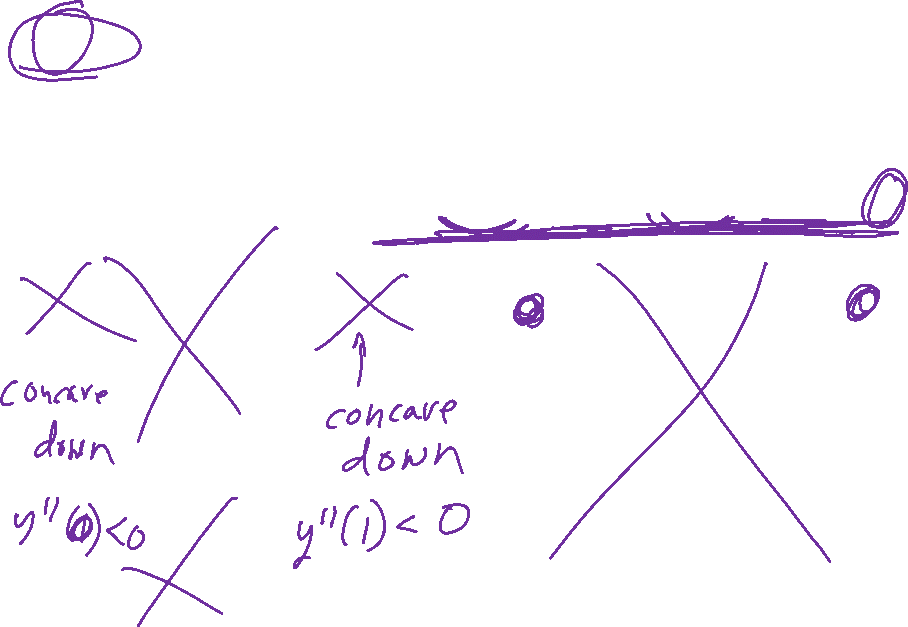 concave
down
y''(0)<0
concave
down
y''(1)<0